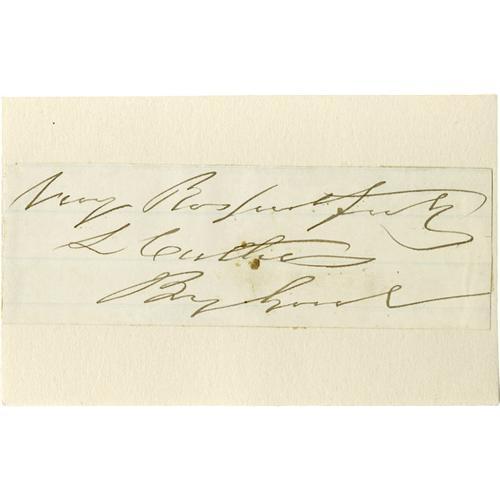 Very Respectfully
L Cutler
Brg Genl